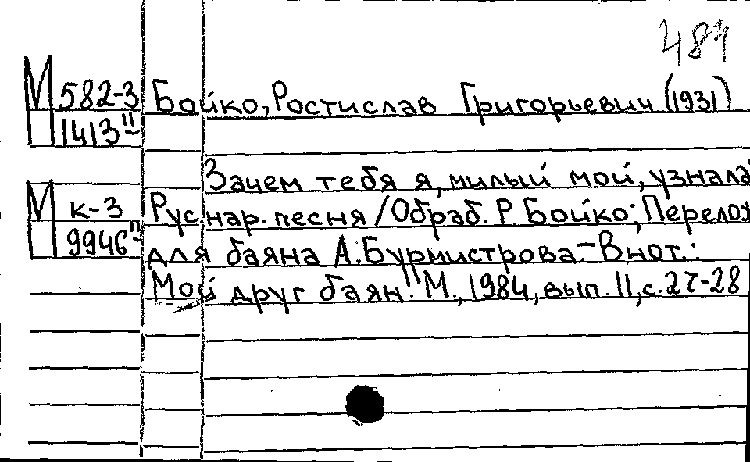 484
М 582-3 Бойко, Ростислав Григорьевич (1931)
1413"
Зачем тебя я, милый мой, узнала
М к-3 Рус. нар. песня / Обраб. Р. Бойко; Перелож
9946" для баяна А. Бурмистрова.- В нот.:
Мой друг баян." М., 1984, вып. 11, с. 27-28